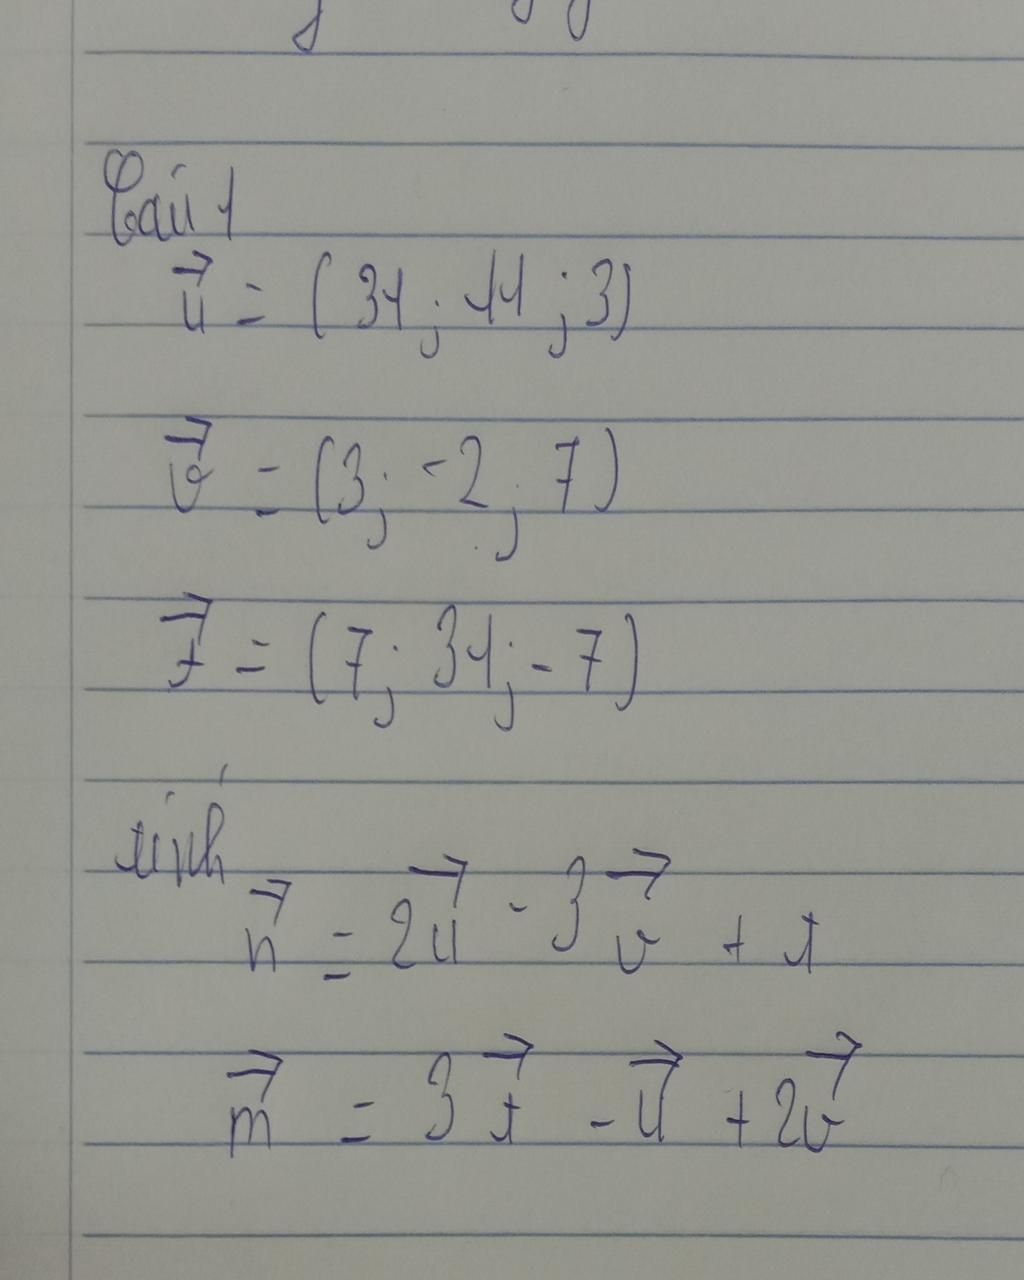 Bài 1
u⃗ = (31; 11; 3)
v⃗ = (3; -2; 7)
t⃗ = (7; 31; -7)
tính
n⃗ = 2u⃗ - 3v⃗ + t
m⃗ = 3t⃗ - u⃗ + 2v⃗